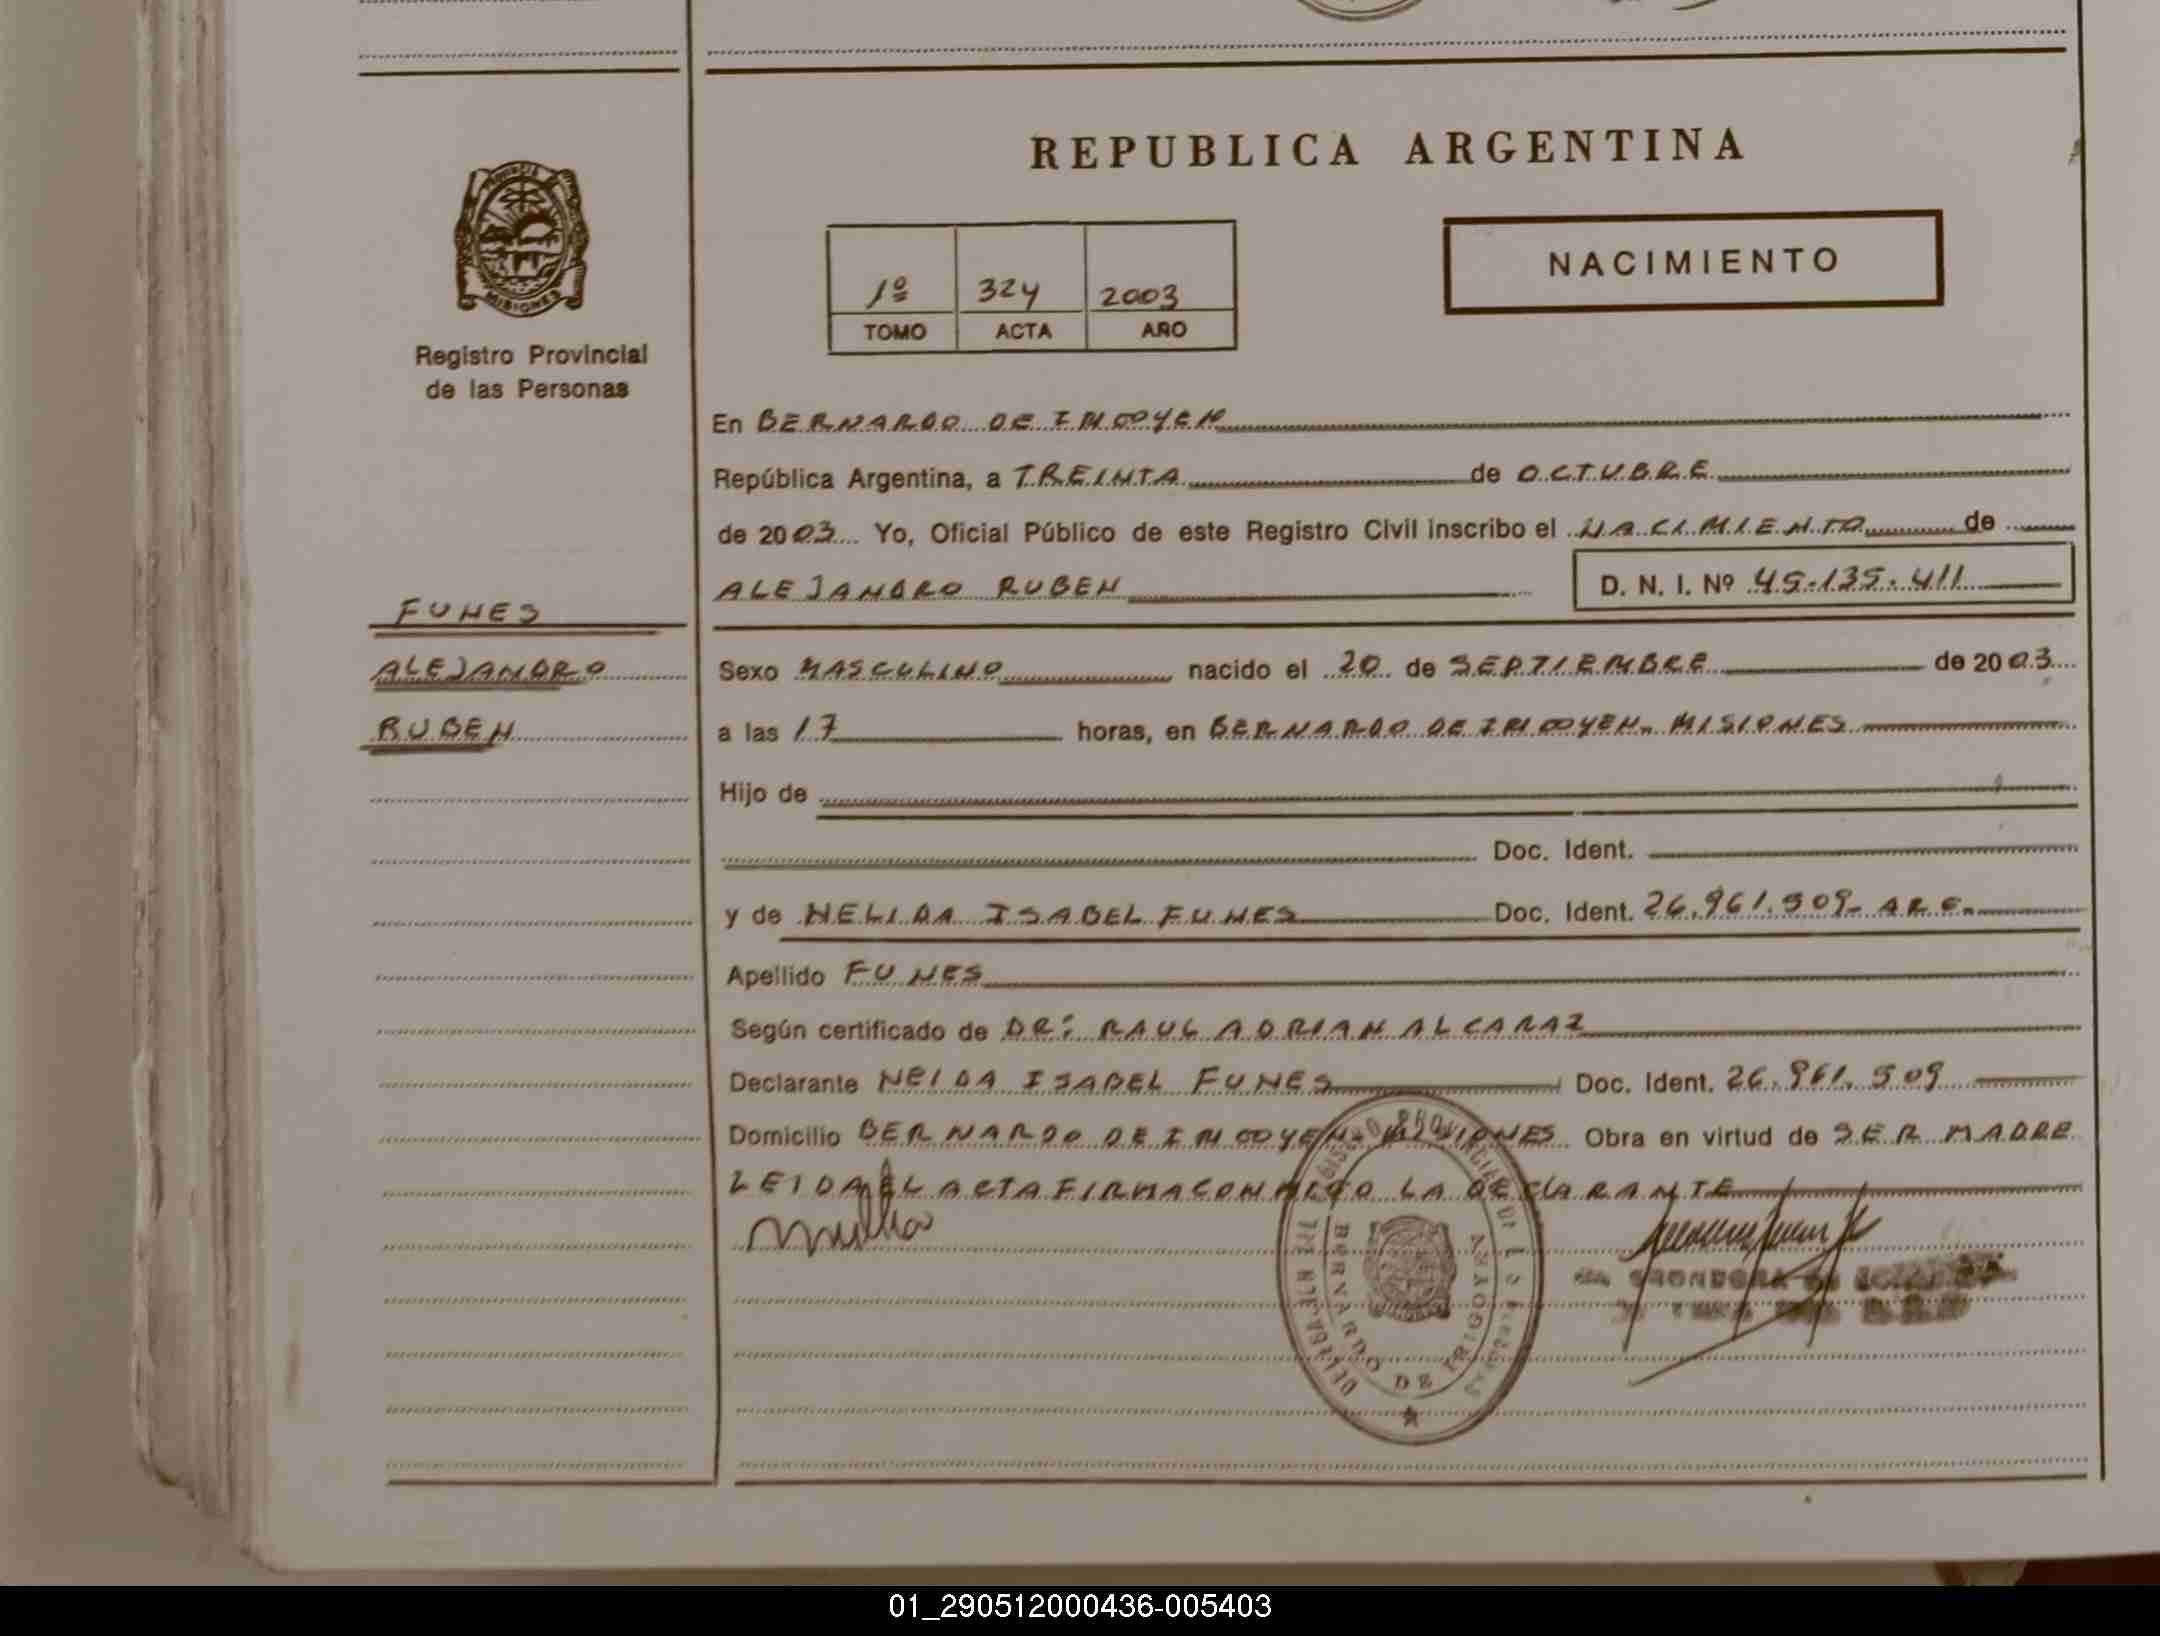 PROVINCIA DE
MISIONES
Registro Provincial
de las Personas
REPUBLICA ARGENTINA
1º 324 2003
TOMO ACTA AÑO
NACIMIENTO
En BERNARDO DE IRIGOYEN
República Argentina, a TREINTA de OCTUBRE
de 2003 Yo, Oficial Público de este Registro Civil inscribo el NACIMIENTO de
ALEJANDRO RUBEN D. N. I. Nº 45.135.411
FUNES
ALEJANDRO
RUBEN
Sexo MASCULINO nacido el 20 de SEPTIEMBRE de 2003
a las 17 horas, en BERNARDO DE IRIGOYEN - MISIONES
Hijo de
Doc. Ident.
y de NELIDA ISABEL FUNES Doc. Ident. 26.961.509 - ARG.
Apellido FUNES
Según certificado de DR: RAUL ADRIAN ALCARAZ
Declarante NEIDA ISABEL FUNES Doc. Ident. 26.961.509
Domicilio BERNARDO DE IRIGOYEN - MISIONES Obra en virtud de SER MADRE
LEIDA EL ACTA FIRMA CONMIGO LA DECLARANTE
REGISTRO PROVINCIAL DE LAS PERSONAS
BERNARDO DE IRIGOYEN
01_290512000436-005403